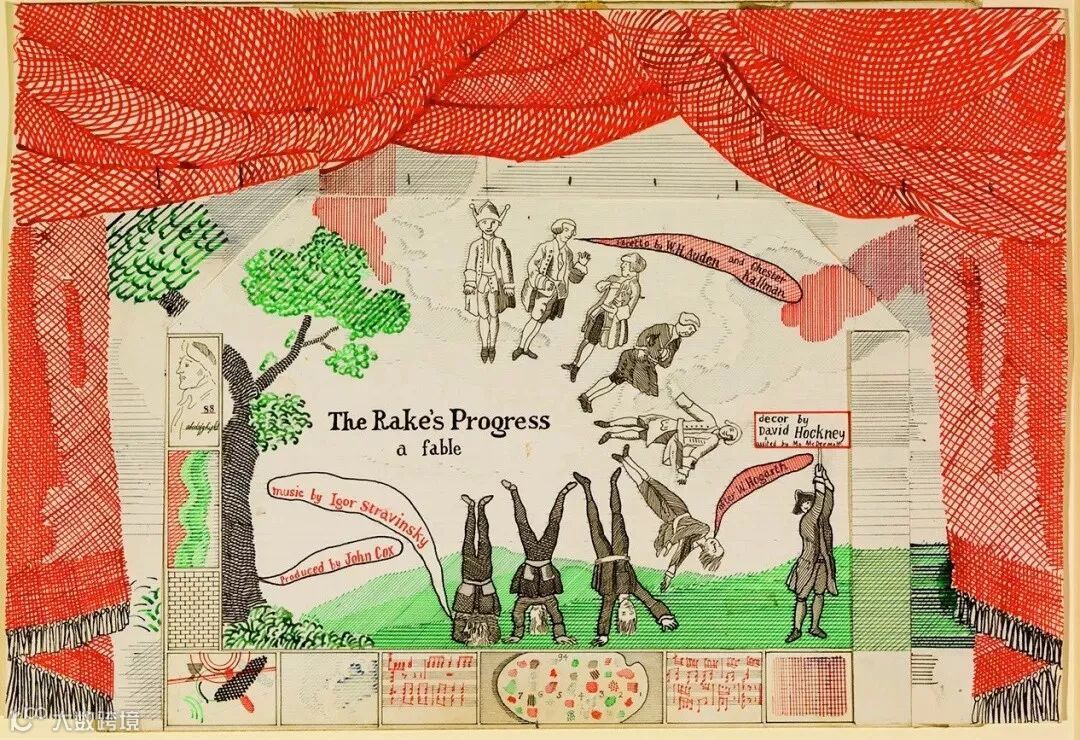 libretto by W.H. Auden and Chester
Kallman
The Rake's Progress
a fable
decor by
David Hockney
assisted by Mo McDermott
after W. Hogarth
music by Igor Stravinsky
Produced by John Cox
大数跨境